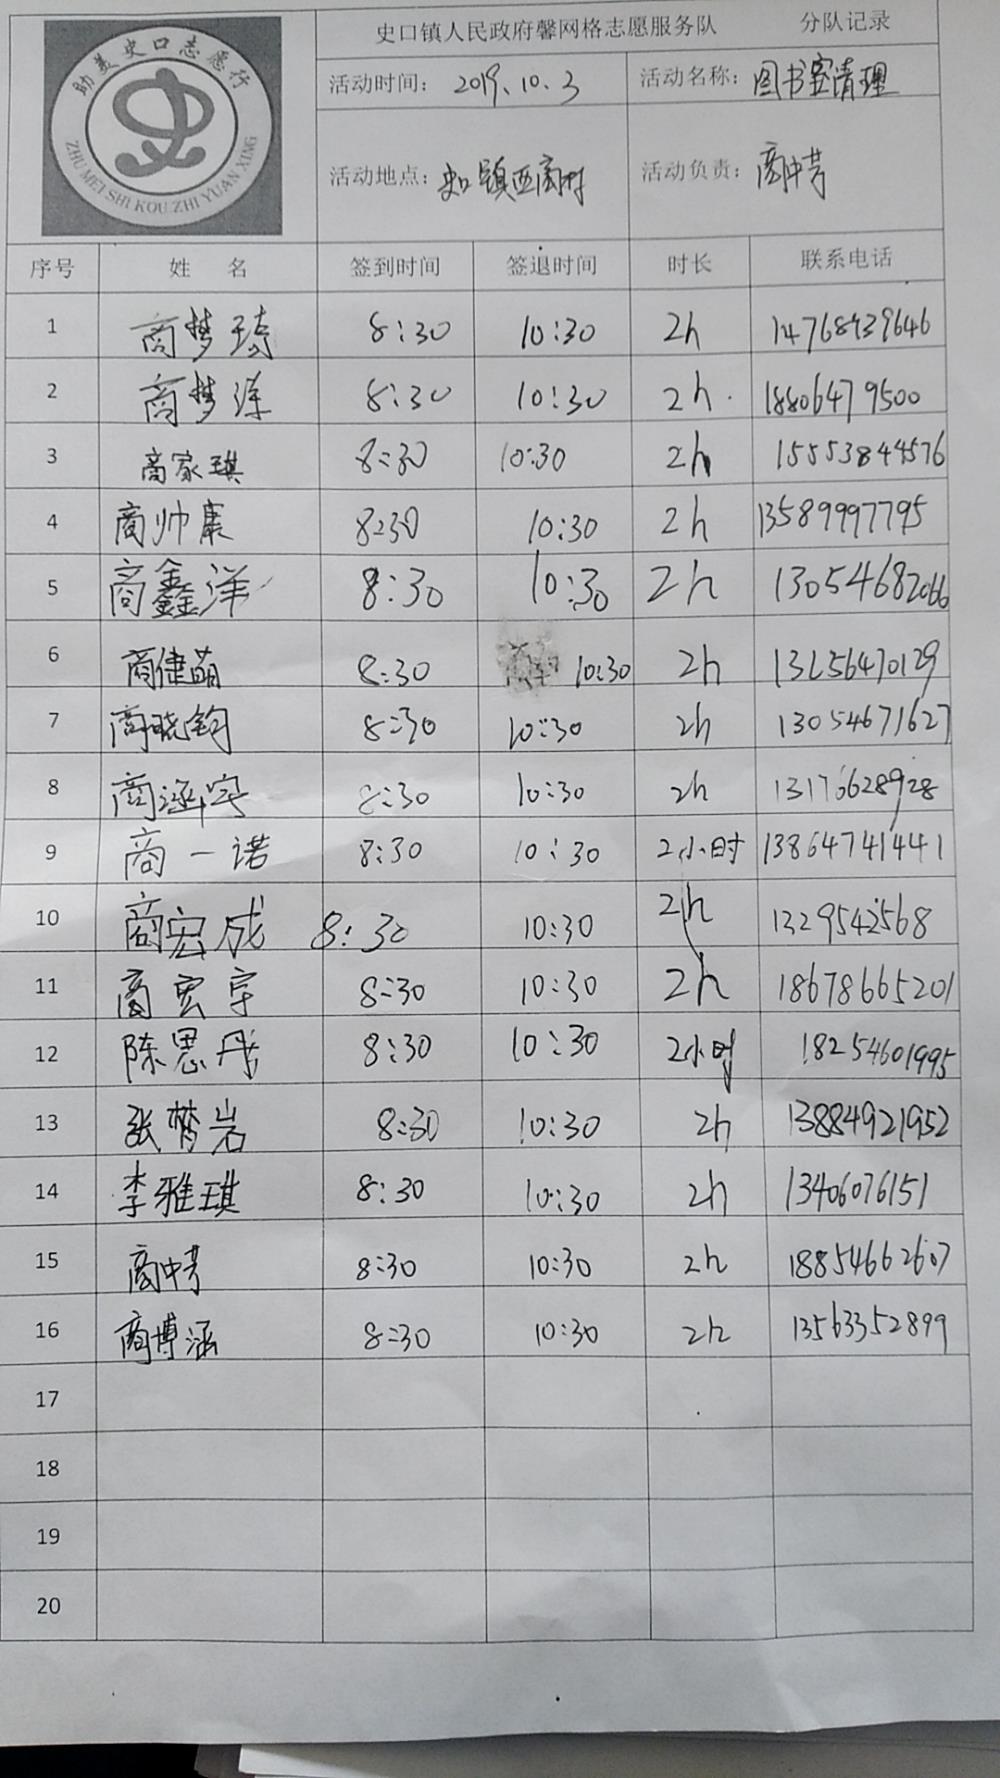 助美史口志愿行
ZHU MEI SHI KOU ZHI YUAN XING
史口镇人民政府馨网格志愿服务队 分队记录
活动时间：2019.10.3 活动名称：图书室清理
活动地点：史口镇西商村 活动负责：商中芳
序号 姓名 签到时间 签退时间 时长 联系电话
1 商梦琦 8:30 10:30 2h 14768439646
2 商梦泽 8:30 10:30 2h 18806479500
3 商家琪 8:30 10:30 2h 15553844576
4 商帅康 8:30 10:30 2h 13589997795
5 商鑫洋 8:30 10:30 2h 13054682066
6 商健萌 8:30 10:30 2h 13256470129
7 商晓钧 8:30 10:30 2h 13054671627
8 商涵宇 8:30 10:30 2h 13176628928
9 商一诺 8:30 10:30 2小时 13864741441
10 商宏成 8:30 10:30 2h 1329542568
11 商宏宇 8:30 10:30 2h 18678665201
12 陈思彤 8:30 10:30 2小时 18254601995
13 张梦岩 8:30 10:30 2h 13884921952
14 李雅琪 8:30 10:30 2h 13406076151
15 商中芳 8:30 10:30 2h 18854662607
16 商博涵 8:30 10:30 2h 13563352899
17
18
19
20